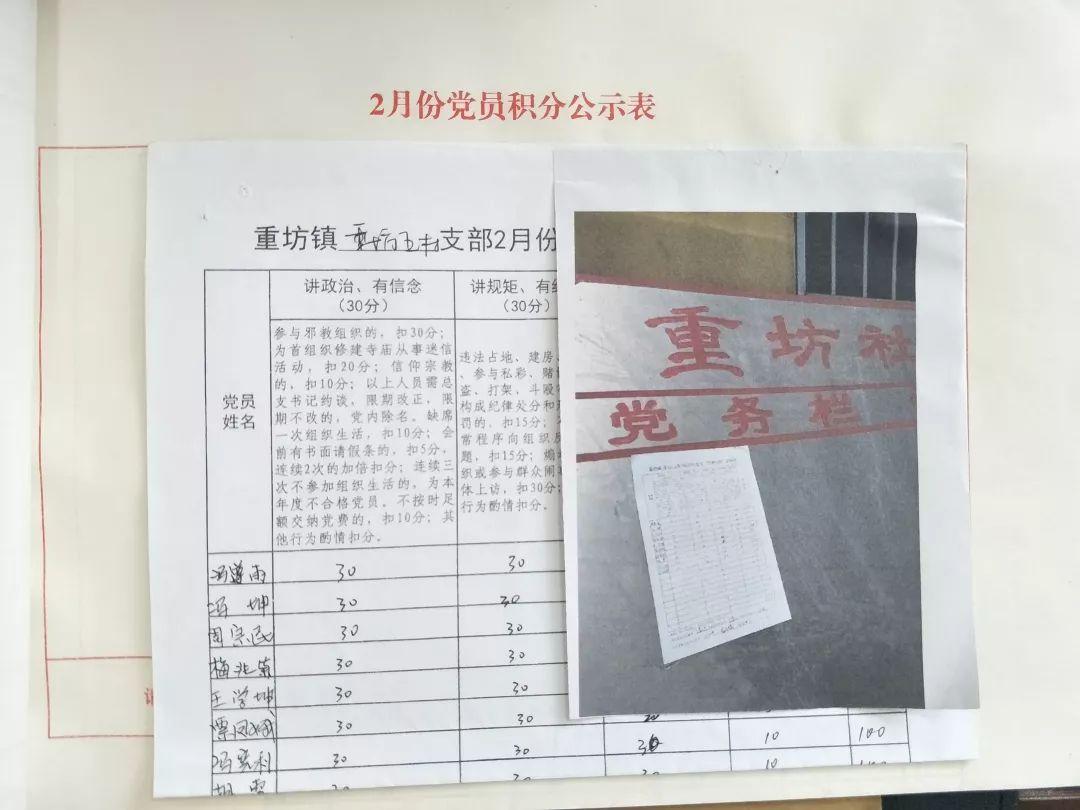 2月份党员积分公示表
重坊镇 支部2月份
讲政治、有信念
（30分）
讲规矩、有
（30分）
党员
姓名
参与邪教组织的，扣30分；
为首组织修建寺庙从事迷信
活动，扣20分；信仰宗教
的，扣10分；以上人员需总
支书记约谈，限期改正，限
期不改的，党内除名。缺席
一次组织生活，扣10分；会
前有书面请假条的，扣5分，
连续2次的加倍扣分；连续三
次不参加组织生活的，为本
年度不合格党员。不按时足
额交纳党费的，扣10分；其
他行为酌情扣分。
违法占地、建房、
、参与私彩、赌
盗、打架，斗殴
构成纪律处分和
罚的，扣15分；
常程序向组织反
题，扣15分；煽
织或参与群众闹
体上访，扣30分；
行为酌情扣分。
30 30
冯坤 30 30
周宗民 30 30
梅兆菊 30 30
王学坤 30 30
30 30
30 30 30 10 100
30 10
重坊社
党务栏